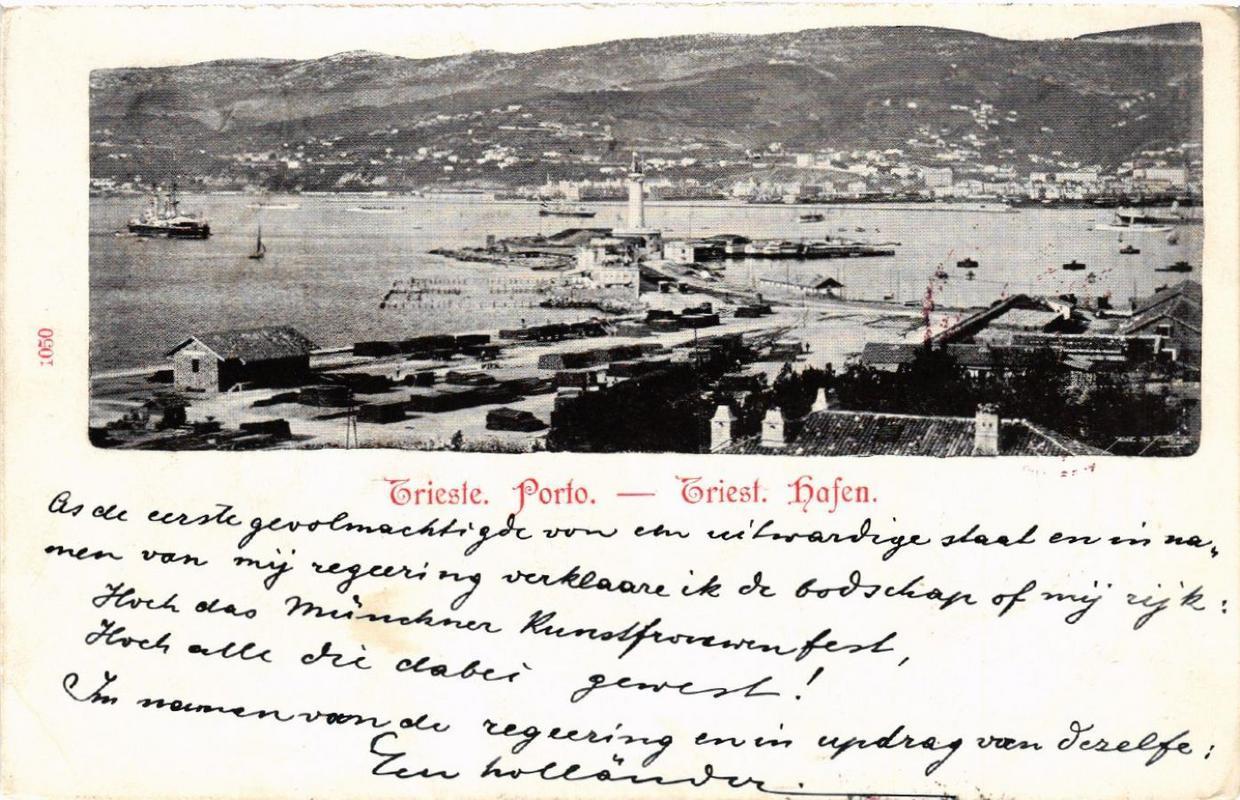 1050
Trieste. Porto. — Triest. Hafen.
As de eerste gevolmachtigde von een uitwardige staat en in na-
men van mij regeering verklaare ik de bodschap of mij rijk:
Hoch das Münchner Kunstfrouwenfest,
Hoch alle die dabei gewest!
Im namen van de regeering en in updrag van dezelfe:
Een holländer.